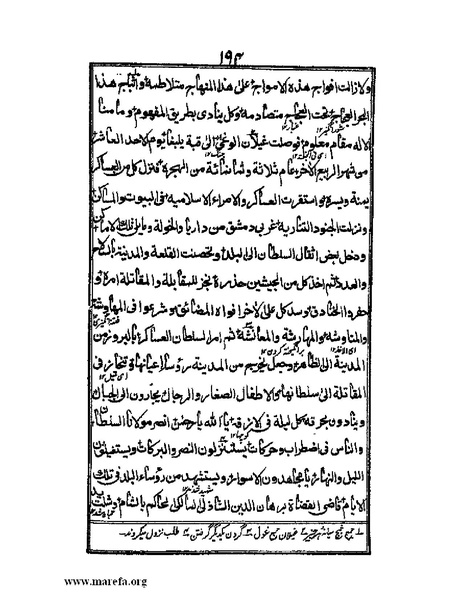 ١٩٤
ولا زالت افواج هذه الامواج على هذا المنهاج متلاطمة واثباج هذا
البحر العجاج تحت العجاج متصادمة وكل ينادى بطريق المفهوم وما منا
الا له مقام معلوم فوصلت غيلان الوغى الى قبة يلبغا يوم الاحد العاشر
من شهر الربيع الآخر عام ثلاثة وثمانمائة من الهجرة فنزل كل من العساكر
يمنة ويسرة واستقرت العساكر والامراء الاسلامية فى البيوت والمساكن
ونزلت الجنود التتارية غربى دمشق من داريا والحولة وما يلى تلك الاماكن
ودخل بعض اثقال السلطان الى البلد وتحصنت القلعة والمدينة بالسلاح
والعدد ثم اخذ كل من الجيشين حذره ونجز للمقابلة والمقاتلة امره و
حفروا الخنادق وسد كل على الآخر افواه المضائق وشرعوا فى المهاوشة
والمناوشة والمهارشة والمعانشة ثم امر السلطان العساكر بالبروز من
المدينة الى الظاهر وجعل يخرج من المدينة رؤسا اعيانها وتتحاز فى
المقاتلة الى سلطانها والاطفال الصغار والرجال يجأرون الى
وينادون بحرقة كل ليلة فى الازقة يا الله يا رحمن انصر مولانا السلطان
والناس فى اضطراب وحركات يستنزلون النصر والبركات ويستغيثون
الليل والنهار يا مجاهدون الاسوار واستشهد من رؤساء البلد فى تلك
الايام قاضى القضاة برهان الدين الشاذلى المالكى الحاكم بالشام وشلت
غيلان جمع غول گردن يكديگر گرفتن طلب نزول ميكردند
www.marefa.org